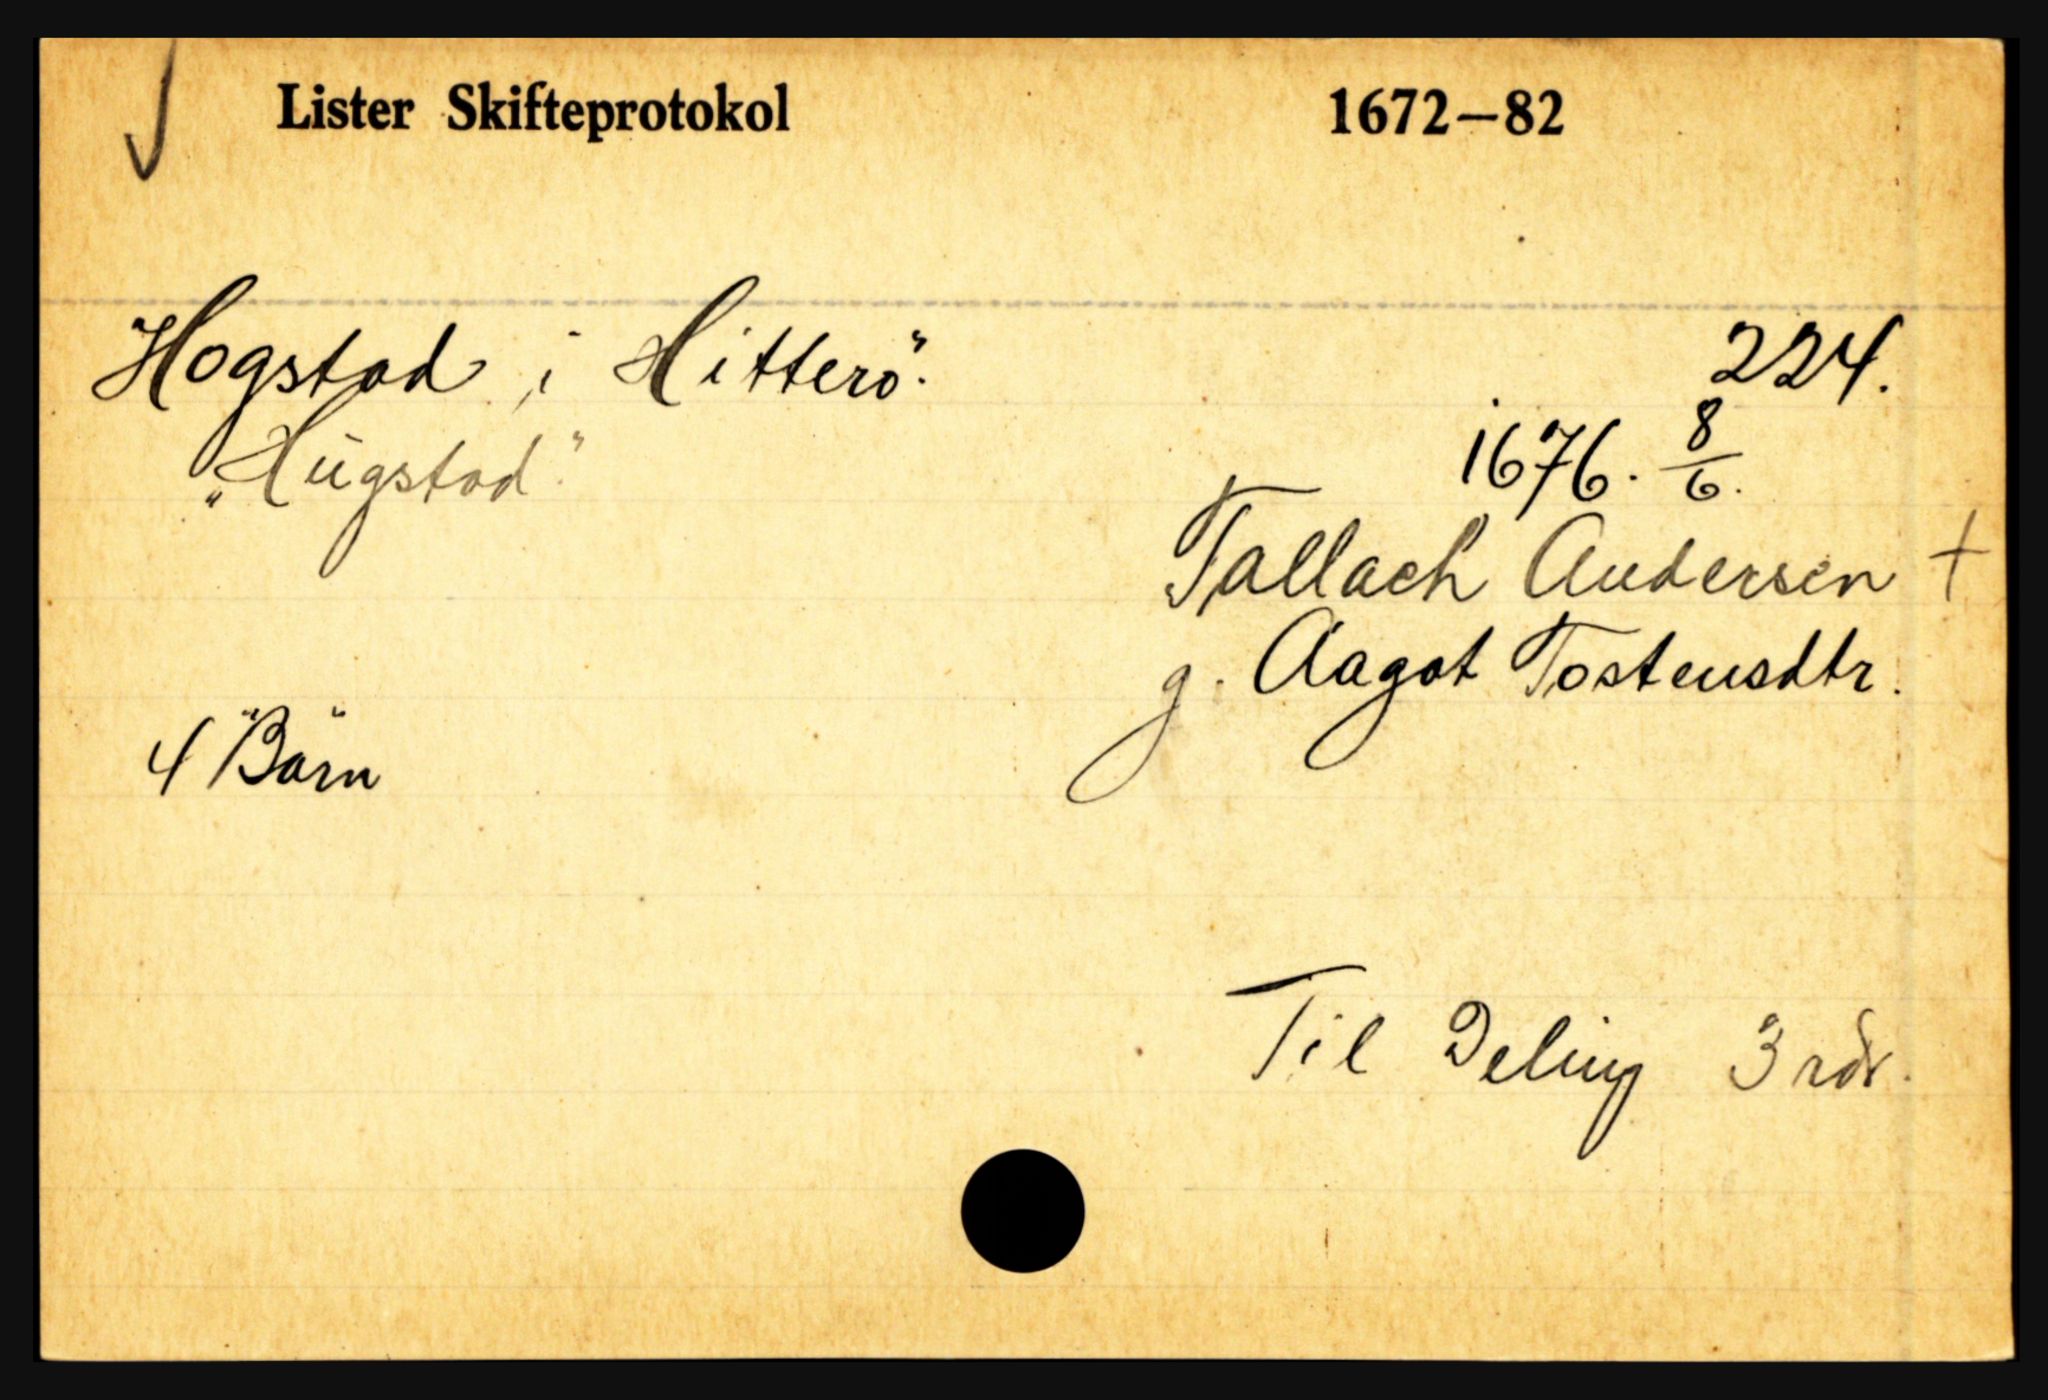 Lister Skifteprotokol 1672–82
Hogstad i Hitterö.
224.
„Hŭgstad"
1676. 8/6.
Tallach Andersen +
g. Aagot Tostensdtr.
4 Börn
Til Deling 3 rdr.